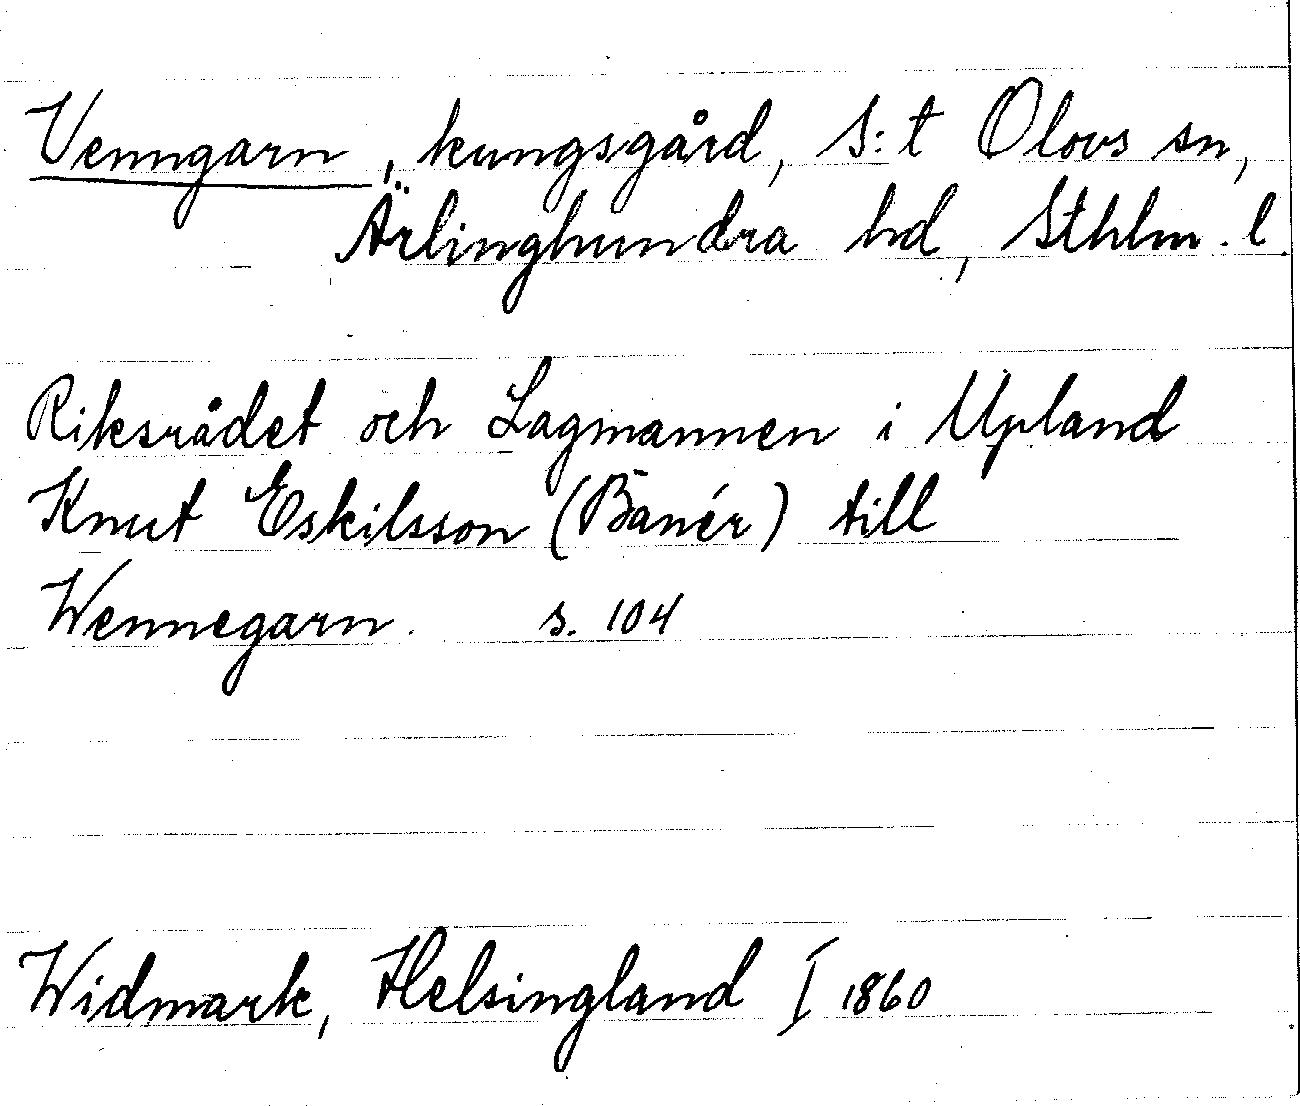 Venngarn, kungsgård, S:t Olovs sn,
Ärlinghundra hd, Sthlm. l.
Riksrådet och Lagmannen i Upland
Knut Eskilsson (Banér) till
Wennegarn. s. 104
Widmark, Helsingland I 1860